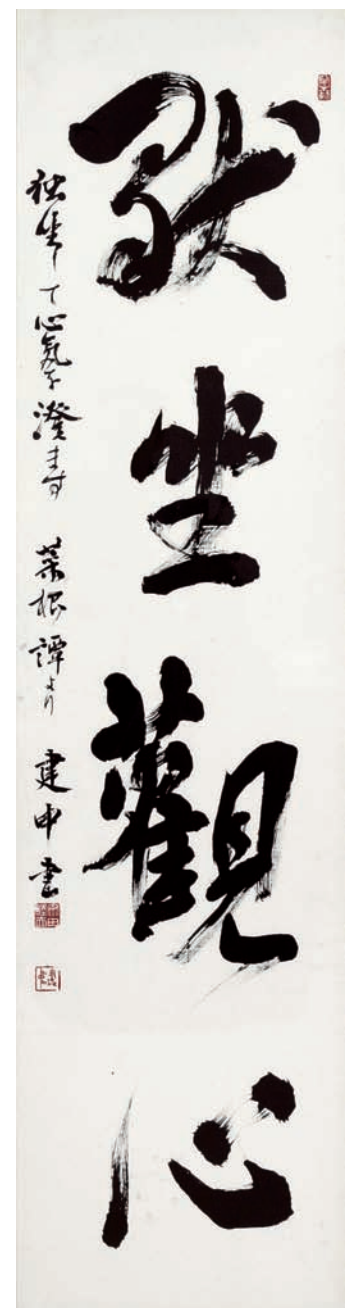 默坐觀心
独坐して心氣を澄ます 菜根譚より 建申書